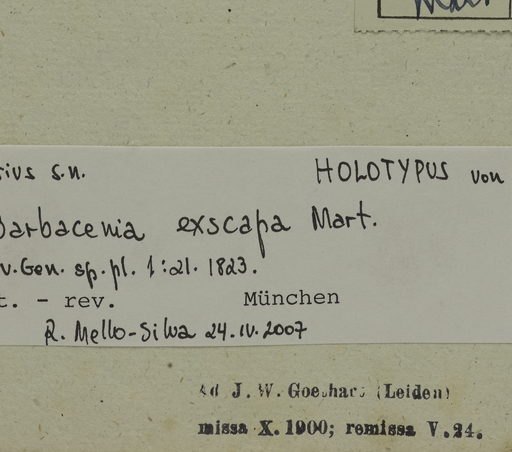 rius s.n. HOLOTYPUS von
Barbacenia exscapa Mart.
v. Gen. sp. pl. 1:21. 1823.
t. - rev. München
R. Mello-Silva 24.IV.2007
Ad J. W. Goethart (Leiden)
missa X. 1900; remissa V.24.